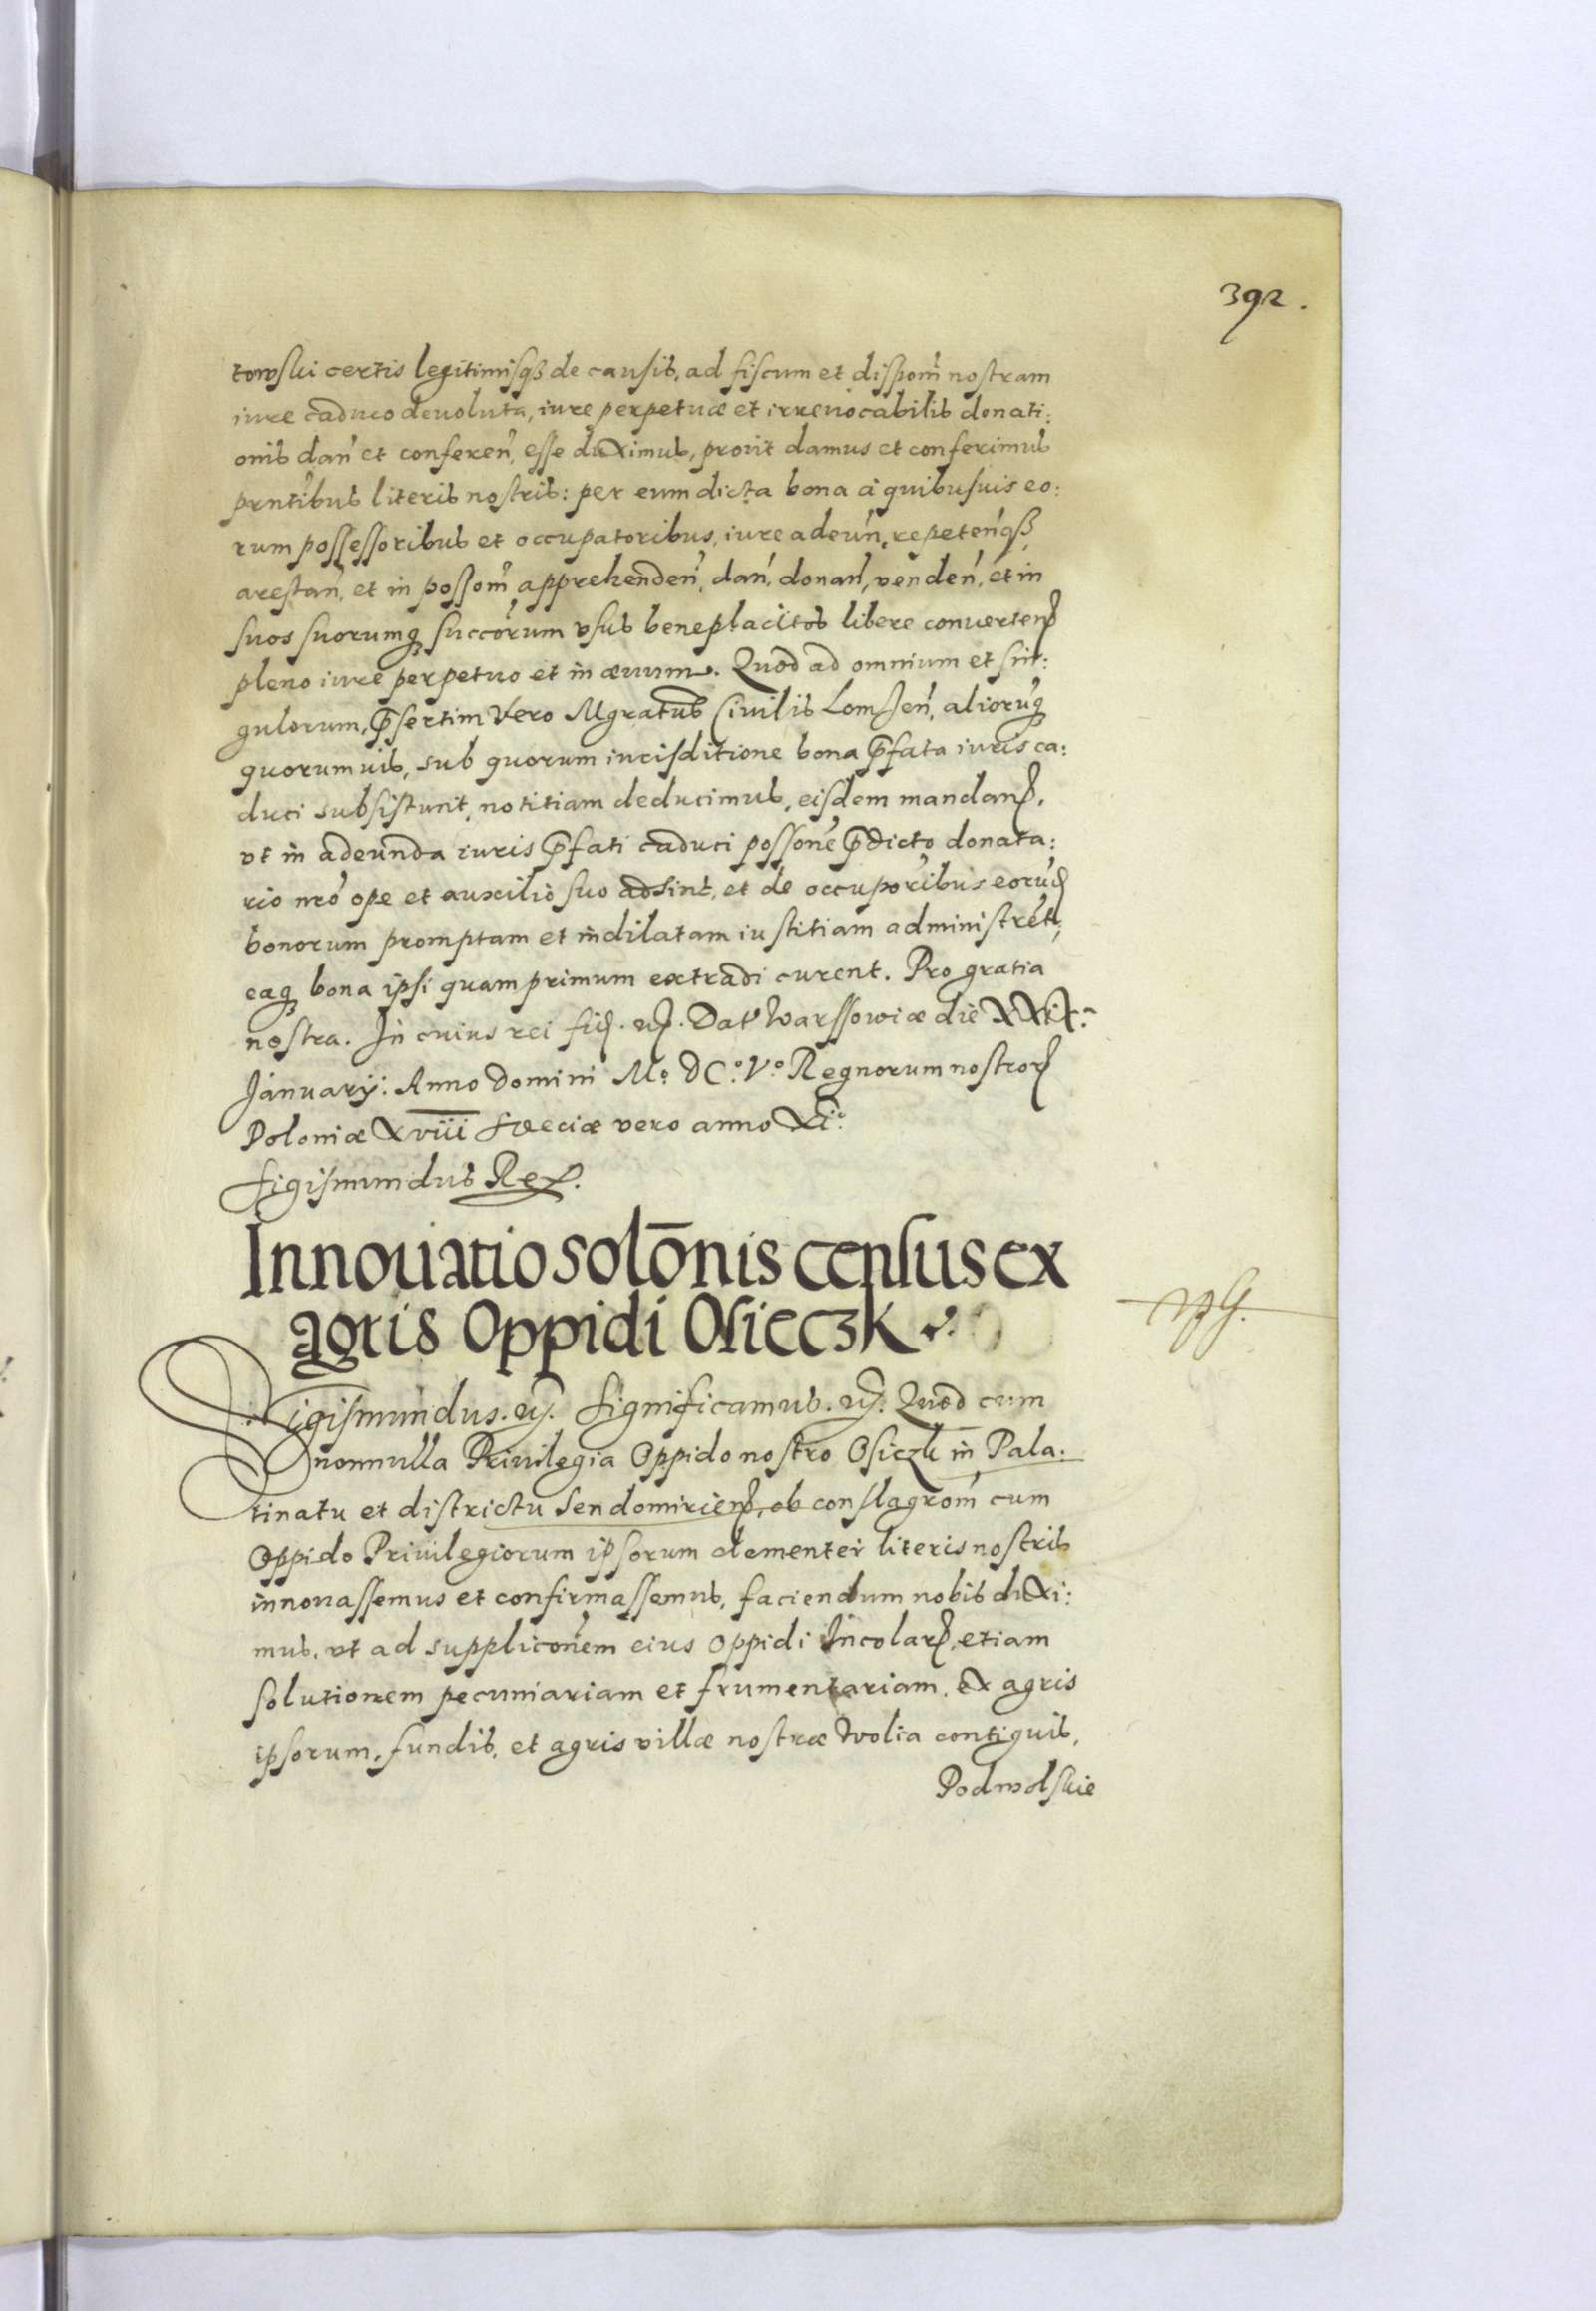 392.
towski certis legitimisqз de causis, ad fiscum et dispom̃ nostram
iure caduco deuoluta, iure perpetuæ et irreuocabilis donati:
onis dañ et confereñ, esse duximus, prout damus et conferimus
prñtibus literis nostris: per eum dicta bona à quibusuis eo:
rum possessoribus et occupatoribus, iure adeuñ, repeteñqз,
arestañ, et in possom̃ apprehendeñ, dañ, donañ, vendeñ, et in
suos suorumqз succõrum vsus beneplacitos libere conuerteñ
pleno iure perpetuo et in æuum. Quod ad omnium et sin:
gulorum, p̃sertim vero Mgratus Ciuilis Lomzeñ, aliorũqз
quorumuis, sub quorum iurisditione bona p̃fata iuris ca:
duci subsistunt, notitiam deducimus, eisdem mandañ,
vt in adeunda iuris p̃fati caduci possonẽ p̃dicto donata:
rio nrõ ope et auxilio suo adsint, et de occuporibus eorũd
bonorum promptam et indilatam iustitiam administrẽt,
eaqз bona ipsi quamprimum extradi curent. Pro gratia
nostra. In cuius rei fid. Dat Warssowiæ die XXIX.
January: Anno Domini Mº. DCº. Vº. Regnorum nostror
Poloniæ Xviii Sveciæ vero anno XIº.
Sigismundus Rex.
Innouatio solõnis census ex
agris Oppidi Osieczk
Sigismundus. Significamus. Quod cum
nonnulla Priuilegia Oppido nostro Osieczk in Pala:
tinatu et districtu Sendomirieñ, ob conflagrom̃ cum
Oppido Priuilegiorum ipsorum clementer literis nostris
innouassemus et confirmassemus, faciendum nobis duxi:
mus, vt ad supplicoñem eius Oppidi Incolar, etiam
solutionem pecuniariam et frumentariam, ex agris
ipsorum, fundis, et agris villæ nostræ Wolia contiguis,
Podwolskie